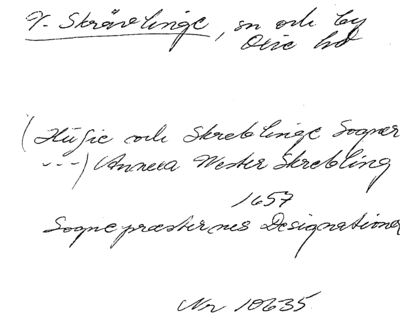 V. Skrävlinge, sn och by
Oxie hd
(Hüsie och Skreblinge Sogner
---) Annexa Wester Skrebling
1657
Sognepræsternes Designationer
Nr 10635